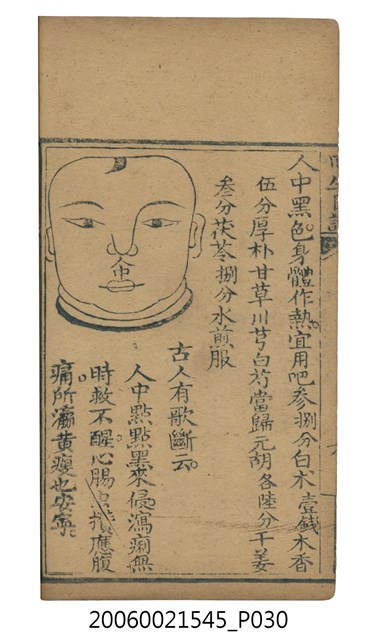 人中黑色身體作熱宜用吧參捌分白朮壹錢木香
伍分厚朴甘草川芎白芍當歸元胡各陸分干姜
叁分茯苓捌分水煎服
古人有歌斷云
人中點點墨來侵瀉痢無
時救不醒心腸 損應腹
痛所瀉黄瘦也安寧
中
20060021545_P030